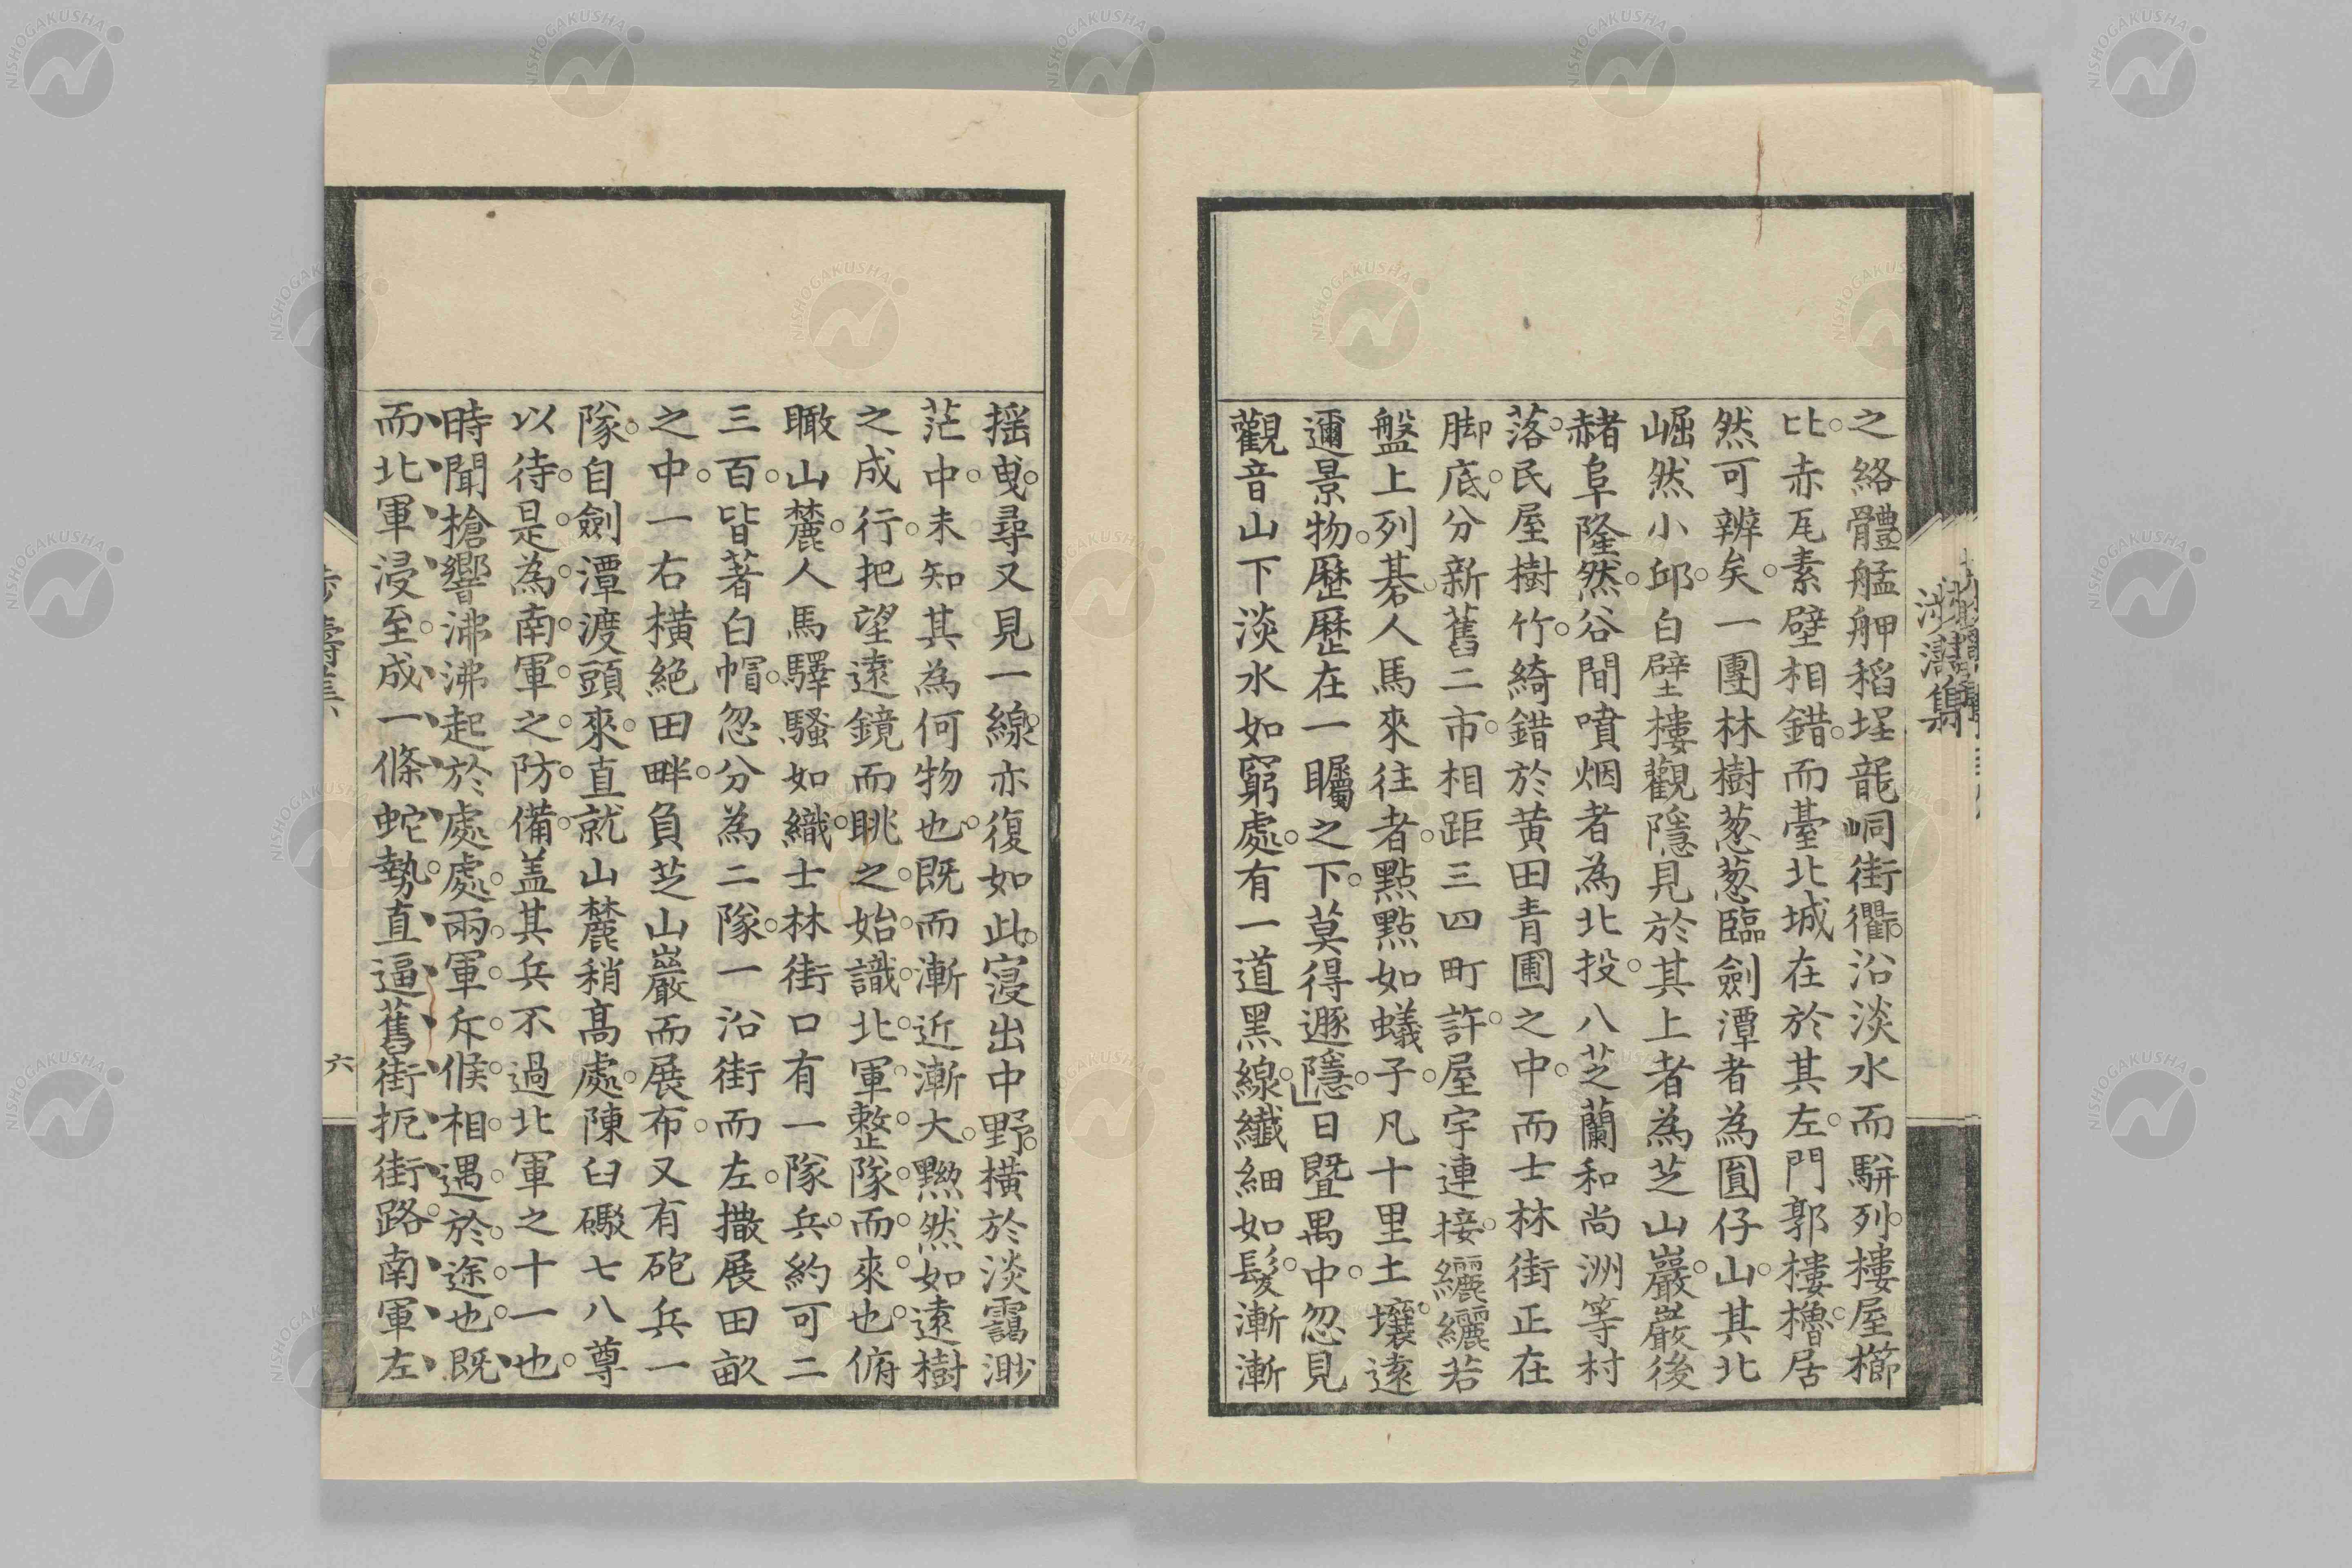 之絡體艋舺稻埕龍峒街衢沿淡水而駢列樓屋櫛
比赤瓦素壁相錯而臺北城在於其左門郭樓櫓居
然可辨矣一團林樹葱葱臨劍潭者為圓仔山其北
崛然小邱白壁樓觀隱見於其上者為芝山巖巖後
赭阜隆然谷間噴烟者為北投八芝蘭和尚洲等村
落民屋樹竹綺錯於黄田青圃之中而士林街正在
脚底分新舊二市相距三四町許屋宇連接纚纚若
盤上列棊人馬來往者點點如蟻子凡十里土壤遠
邇景物歷歷在一矚之下莫得遯隱日暨禺中忽見
觀音山下淡水如窮處有一道黑線纖細如髮漸漸
搖曳尋又見一線亦復如此寖出中野橫於淡靄渺
茫中未知其為何物也既而漸近漸大黝然如遠樹
之成行把望遠鏡而眺之始識北軍整隊而來也俯
瞰山麓人馬驛騷如織士林街口有一隊兵約可二
三百皆著白帽忽分為二隊一沿街而左撒展田畝
之中一右橫絶田畔負芝山巖而展布又有砲兵一
隊自劍潭渡頭來直就山麓稍髙處陳臼礮七八尊
以待是為南軍之防備盖其兵不過北軍之十一也
時聞槍響沸沸起於處處兩軍斥候相遇於途也既
而北軍浸至成一條蛇勢直逼舊街扼街路南軍左
六